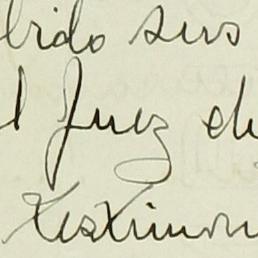 bido sus
l Juez de
Testimoni